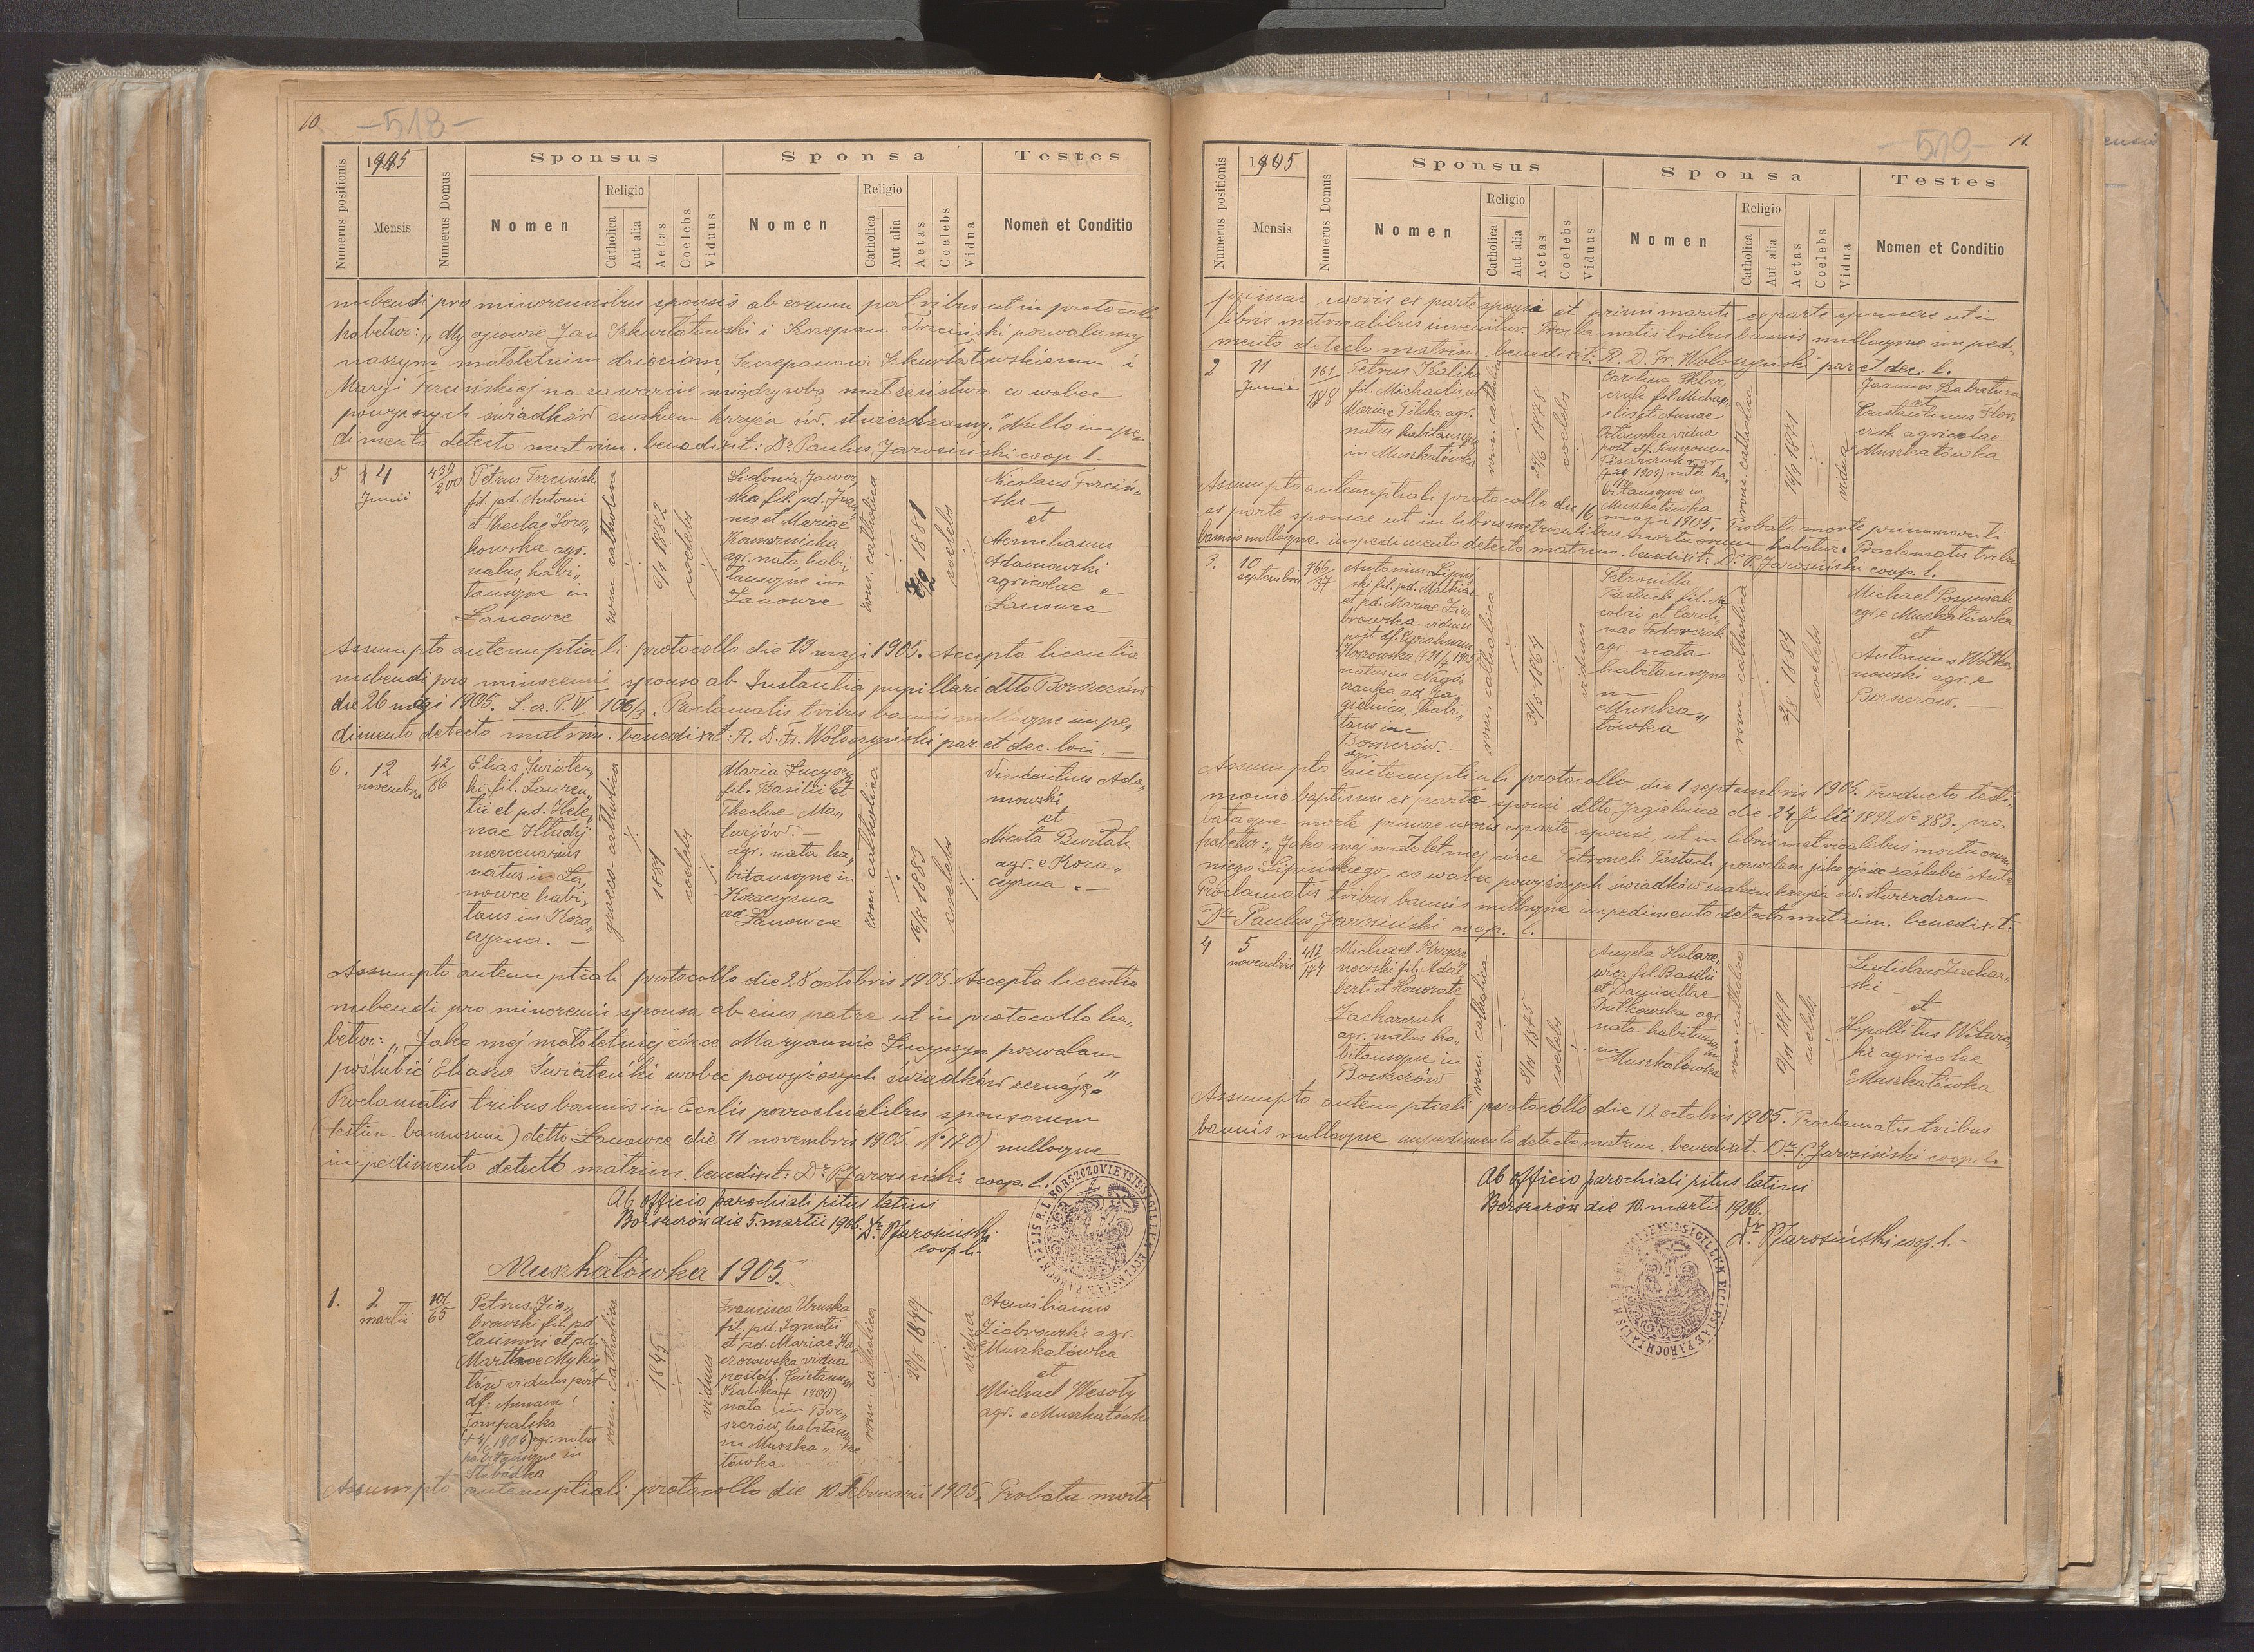 10
-518-
Numerus positionis
1905
Mensis
Numerus Domus
Sponsus
Nomen
Religio
Catholica
Aut alia
Aetas
Coelebs
Viduus
Sponsa
Nomen
Religio
Catholica
Aut alia
Aetas
Coelebs
Vidua
Testes
Nomen et Conditio
nubendi pro minorennibus sponsis ab eorum patribus ut in protocollo
habetur: „My ojcowie Jan Szkurłatowski i Szczepan Trzciński pozwalamy
naszym małoletnim dzieciom, Szczepanowi Szkurłatowskiemu i
Maryi Trzcińskiej na zawarcie między sobą małżeństwa co wobec
powyższych świadków znakiem krzyża św. stwierdzamy." Nullo impe„
dimento detecto matrim. benedixit: Dr Paulus Jarosiński coop. l.
5
4
Junii
438/200
Petrus Trzciński
fil. pd. Antonii
et Theclae Soro„
kowska agr.
natus, habi„
tansque in
Łanowce
rom. catholica
6/1 1882
coelebs
Sidonia Jawor„
ska fil. pd. Joan„
nis et Mariae
Komarnicka
agr. nata, habi„
tansque in
Łanowce
rom. catholica
1881
coelebs
Nicolaus Trzciń„
ski
et
Aemilianus
Adamowski
agricolae e
Łanowce
Assumpto antenuptiali protocollo die 19 maji 1905. Accepta licentia
nubendi pro minorenni sponso ab Instantia pupillari dtto Borszczów
die 26 maji 1905. L. cz. P. V 106/3. Proclamatis tribus bannis nulloque impe„
dimento detecto matrim. benedixit: R. D. Fr. Wołoszyński par. et dec. loci. —
6.
12
novembris
42/86
Elias Świateń„
ki fil. Lauren„
tii et pd. Hele„
nae Hładij
mercenarius
natus in Ła„
nowce habi„
tans in Kora„
czyna. —
graeco-catholica
1881
coelebs
Maria Łucyszyn
fil. Basilii et
Theclae Ma„
twijów. —
agr. nata ha„
bitansque in
Koraczyna
ad Łanowce
rom. catholica
16/8 1883
coelebs
Vincentius Ada„
mowski
et
Nicota Burtak
agr. e Kora„
czyna. —
Assumpto antenuptiali protocollo die 28 octobris 1905. Accepta licentia
nubendi pro minorenni sponsa ab eius patre ut in protocollo ha„
betur: „Jako mej małoletniej córce Maryannie Łucyszyn pozwalam
poślubić Eliasza Świateńki wobec powyższych świadków zeznaję."
Proclamatis tribus bannis in Ecclis parochialibus sponsorum
(testim. bannorum) dtto Łanowce die 11 novembris 1905 N° 170) nulloque
impedimento detecto matrim. benedixit: Dr P. Jarosiński coop. l.
Ab officio parochiali ritus latini
Borszczów die 5. martii 1906. Dr. PJarosiński
coop. l. —
Muszkatówka 1905.
1.
2
martii
101/65
Petrus Zio„
browski fil. pd.
Casimiri et pd.
Marthae Myki„
tów viduus post
df. Annam
Tompalska
(+ 4/6 1904) agr. natus
habitansque in
Słobódka
rom. catholica
1845
viduus
Francisca Uruska
fil. pd. Ignatii
et pd. Mariae Ka„
czorowska vidua
post df. Gaietanum
Kalika (+ 1900)
nata in Bor„
szczów, habitansque
in Muszka„
tówka
rom. catholica
20/5 1847
vidua
Aemilianus
Ziobrowski agr.
e Muszkatówka
et
Michael Wesoły
agr. e Muszkatówka
Assumpto antenuptiali protocollo die 10 februarii 1905. Probata morte
11.
-519-
Numerus positionis
1905
Mensis
Numerus Domus
Sponsus
Nomen
Religio
Catholica
Aut alia
Aetas
Coelebs
Viduus
Sponsa
Nomen
Religio
Catholica
Aut alia
Aetas
Coelebs
Vidua
Testes
Nomen et Conditio
primae uxoris ex parte sponsi et primi mariti ex parte sponsae ut in
libris metricalibus invenitur. Proclamatis tribus bannis nulloque impedi„
mento detecto matrim. benedixit: R. D. Fr. Wołoszyński par. et dec. l.
2
11
Junii
161/188
Petrus Kalika
fil. Michaelis et
Mariae Filka agr.
natus habitansque
in Muszkatówka
rom. catholica
29/6 1878
coelebs
Carolina Flor„
czuk fil. Micha„
elis et Annae
Orłowska vidua
post df. Simeonem
Pisarczuk
1904) nata ha„
bitansque in
Muszkatówka
rom. catholica
vidua
Joannes Bałabura
et
Constantinus Flor„
czuk agricolae
e Muszkatówka
Assumpto antenuptiali protocollo die 16 maji 1905. Probata morte primi mariti
ex parte sponsae ut in libris metricalibus mortuorum habetur. Proclamatis tribus
bannis nulloque impedimento detecto matrim. benedixit: Dr. P. Jarosiński coop. l.
3.
10
septembris
766/37
Antonius Lipiń„
ski fil. pd. Mathiae
et pd. Mariae Zio„
browska viduus
post df. Carolinam
Kossowska (+ 21/2 1905)
natus in Nagó„
rzanka ad Ja„
gielnica, habi„
tans in
Borszczów. —
agr.
rom. catholica
3/5 1864
viduus
Petronilla
Pastuch fil. Ni„
colai et Caroli„
nae Fedorczuk
agr. nata
habitansque
in
Muszka„
tówka
rom. catholica
2/8 1884
coelebs
Michael Posysniak
agr. e Muszkatówka
et
Antonius Wołka„
nowski agr. e
Borszczów. —
Assumpto antenuptiali protocollo die 1 septembris 1905. Producto testi„
monio baptismi ex parte sponsi dtto Jagielnica die 24 Julii 1892 N° 283. pro„
bataque morte primae uxoris ex parte sponsi, ut in libris metricalibus mortuorum
habetur: „Jako mej małoletniej córce Petroneli Pastuch pozwalam jako ojciec zaślubić Anto„
niego Lipińskiego, co wobec powyższych świadków znakiem krzyża św. stwierdzam
Proclamatis tribus bannis nulloque impedimento detecto matrim. benedixit:
Dr Paulus Jarosiński coop. l.
4
5
novembris
412/174
Michael Krzyża„
nowski fil. Adal„
berti et Honorate
Zacharczuk
agr. natus ha„
bitansque in
Borszczów
rom. catholica
8/11 1875
coelebs
Angela Halare„
wicz fil. Basilii
et Daniellae
Dutkowska agr.
nata habitansque
in
Muszkatówka
rom. catholica
coelebs
Ladislaus Zachar„
ski
et
Hipollitus Witwic„
ki agricolae
e Muszkatówka
Assumpto antenuptiali protocollo die 12 octobris 1905. Proclamatis tribus
bannis nulloque impedimento detecto matrim. benedixit: Dr P. Jarosiński coop. l.
Ab officio parochiali ritus latini
Borszczów die 10. martii 1906.
Dr. PJarosiński coop. l. —